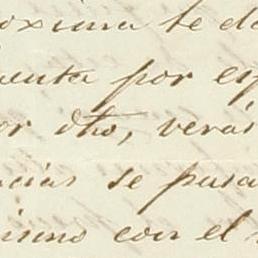 oxima te da
uenta por esp
or dho, verás
ncias se pasa
ismo con el